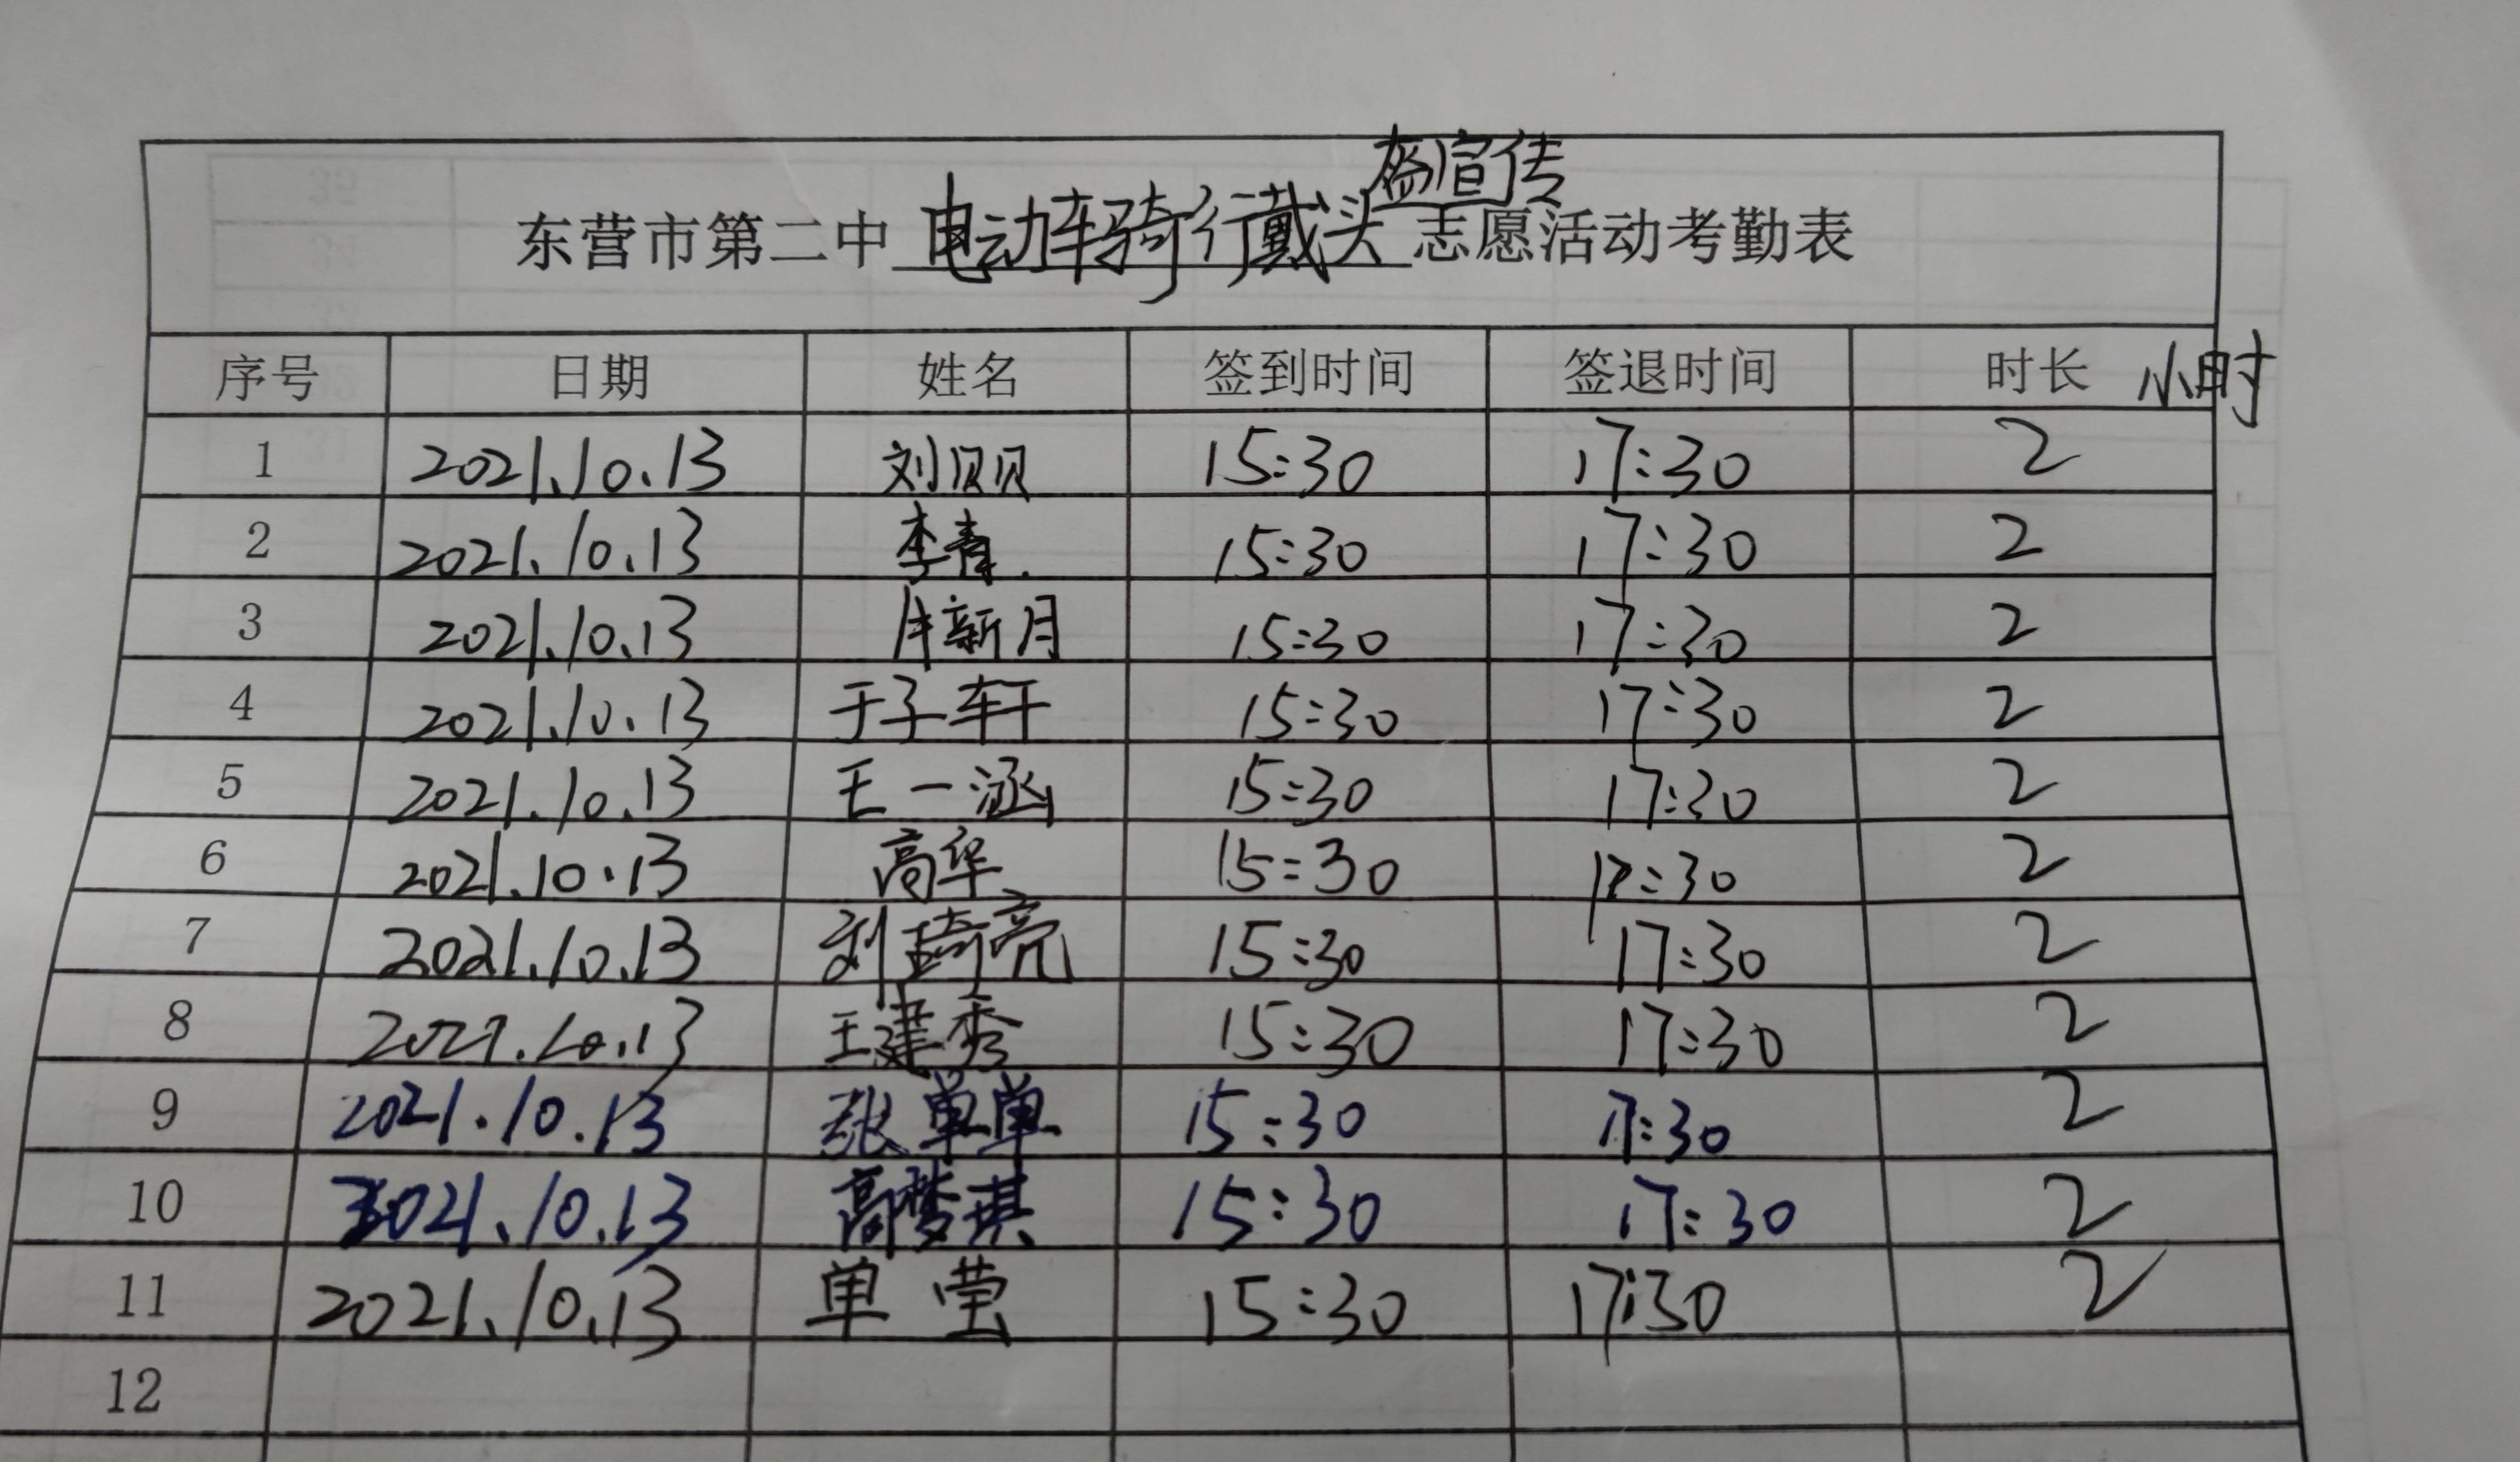 东营市第二中电动车骑行戴头盔宣传志愿活动考勤表
序号 日期 姓名 签到时间 签退时间 时长 小时
1 2021.10.13 刘贝贝 15:30 17:30 2
2 2021.10.13 李青 15:30 17:30 2
3 2021.10.13 新月 15:30 17:30 2
4 2021.10.13 于子轩 15:30 17:30 2
5 2021.10.13 王一涵 15:30 17:30 2
6 2021.10.13 高华 15:30 17:30 2
7 2021.10.13 刘琦亮 15:30 17:30 2
8 2021.10.13 王建秀 15:30 17:30 2
9 2021.10.13 张单单 15:30 17:30 2
10 2021.10.13 高梦琪 15:30 17:30 2
11 2021.10.13 单莹 15:30 17:30 2
12